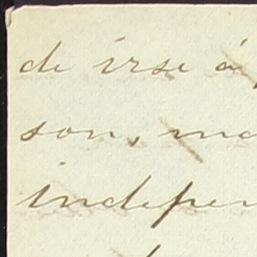 de irse á
son, ma
indepen